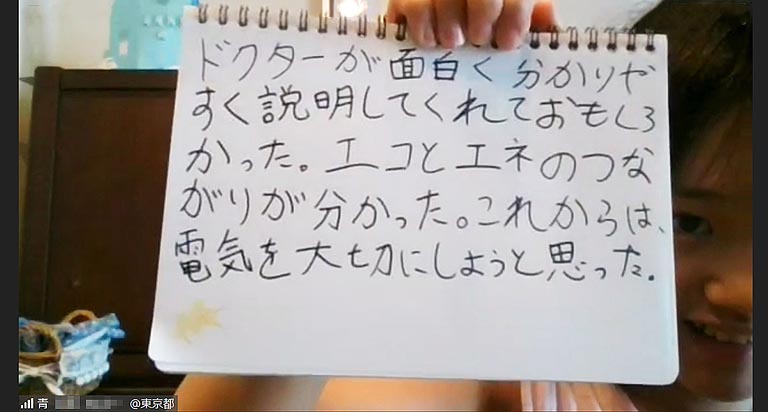 ドクターが面白く分かりや
すく説明してくれておもしろ
かった。エコとエネのつな
がりが分かった。これからは、
電気を大切にしようと思った。
青 @東京都